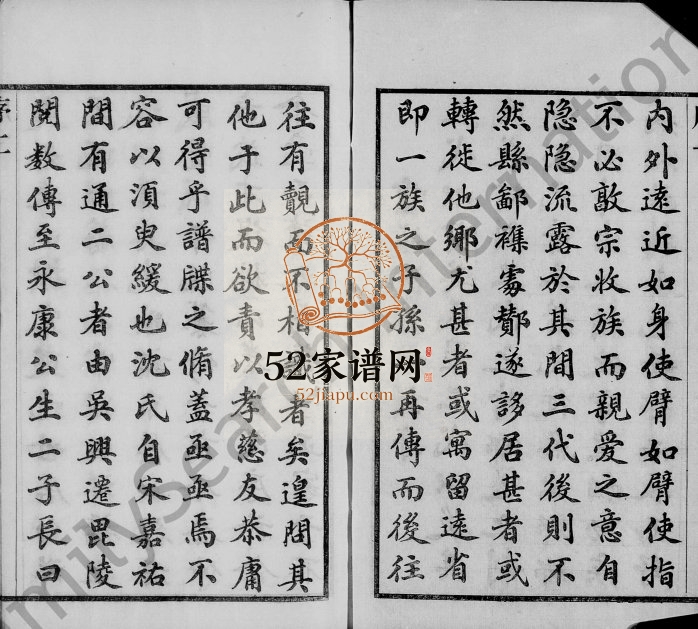 內外遠近如身使臂如臂使指
不必敦宗收族而親愛之意自
隐隐流露於其間三代後則不
然縣鄙襍處酇遂誃居甚者或
轉徙他鄉尤甚者或寓留遠省
即一族之子孫再傳而後往
往有覿面不相者矣遑問其
他于此而欲責以孝慈友恭庸
可得乎譜牒之脩蓋亟亟焉不
容以須臾緩也沈氏自宋嘉祐
間有通二公者由吳興遷毘陵
閱数傳至永康公生二子長曰
序二
52家谱网
52jiapu.com